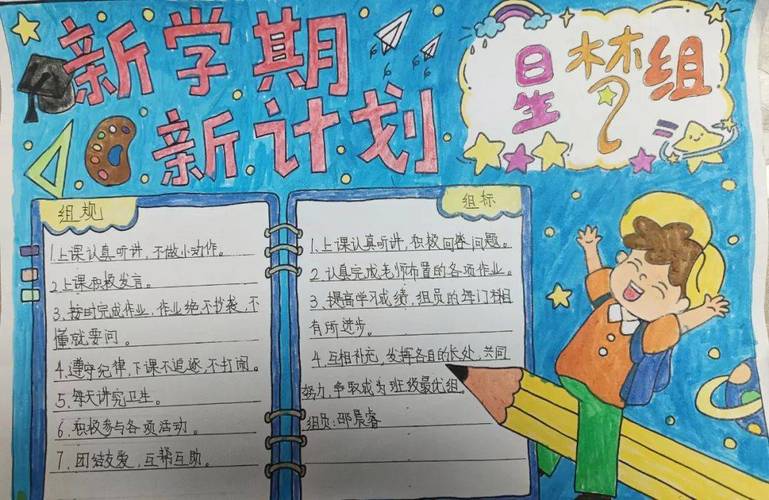 新学期
新计划
星梦组
组规
1.上课认真听讲,不做小动作。
2.上课积极发言。
3.按时完成作业,作业绝不抄袭,不
懂就要问。
4.遵守纪律,下课不追逐,不打闹。
5.每天讲究卫生。
6.积极参与各项活动。
7.团结友爱,互帮互助。
组标
1.上课认真听讲,积极回答问题。
2.认真完成老师布置的各项作业。
3.提高学习成绩,组员的每门课程
有所进步。
4.互相补充,发挥各自的长处,共同
努力,争取成为班级最优组。
组员:邵晨睿